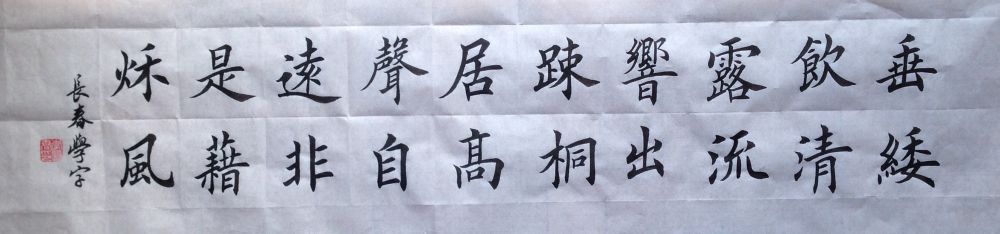 垂緌
飲清
露流
響出
踈桐
居髙
聲自
遠非
是藉
秌風
長春學字